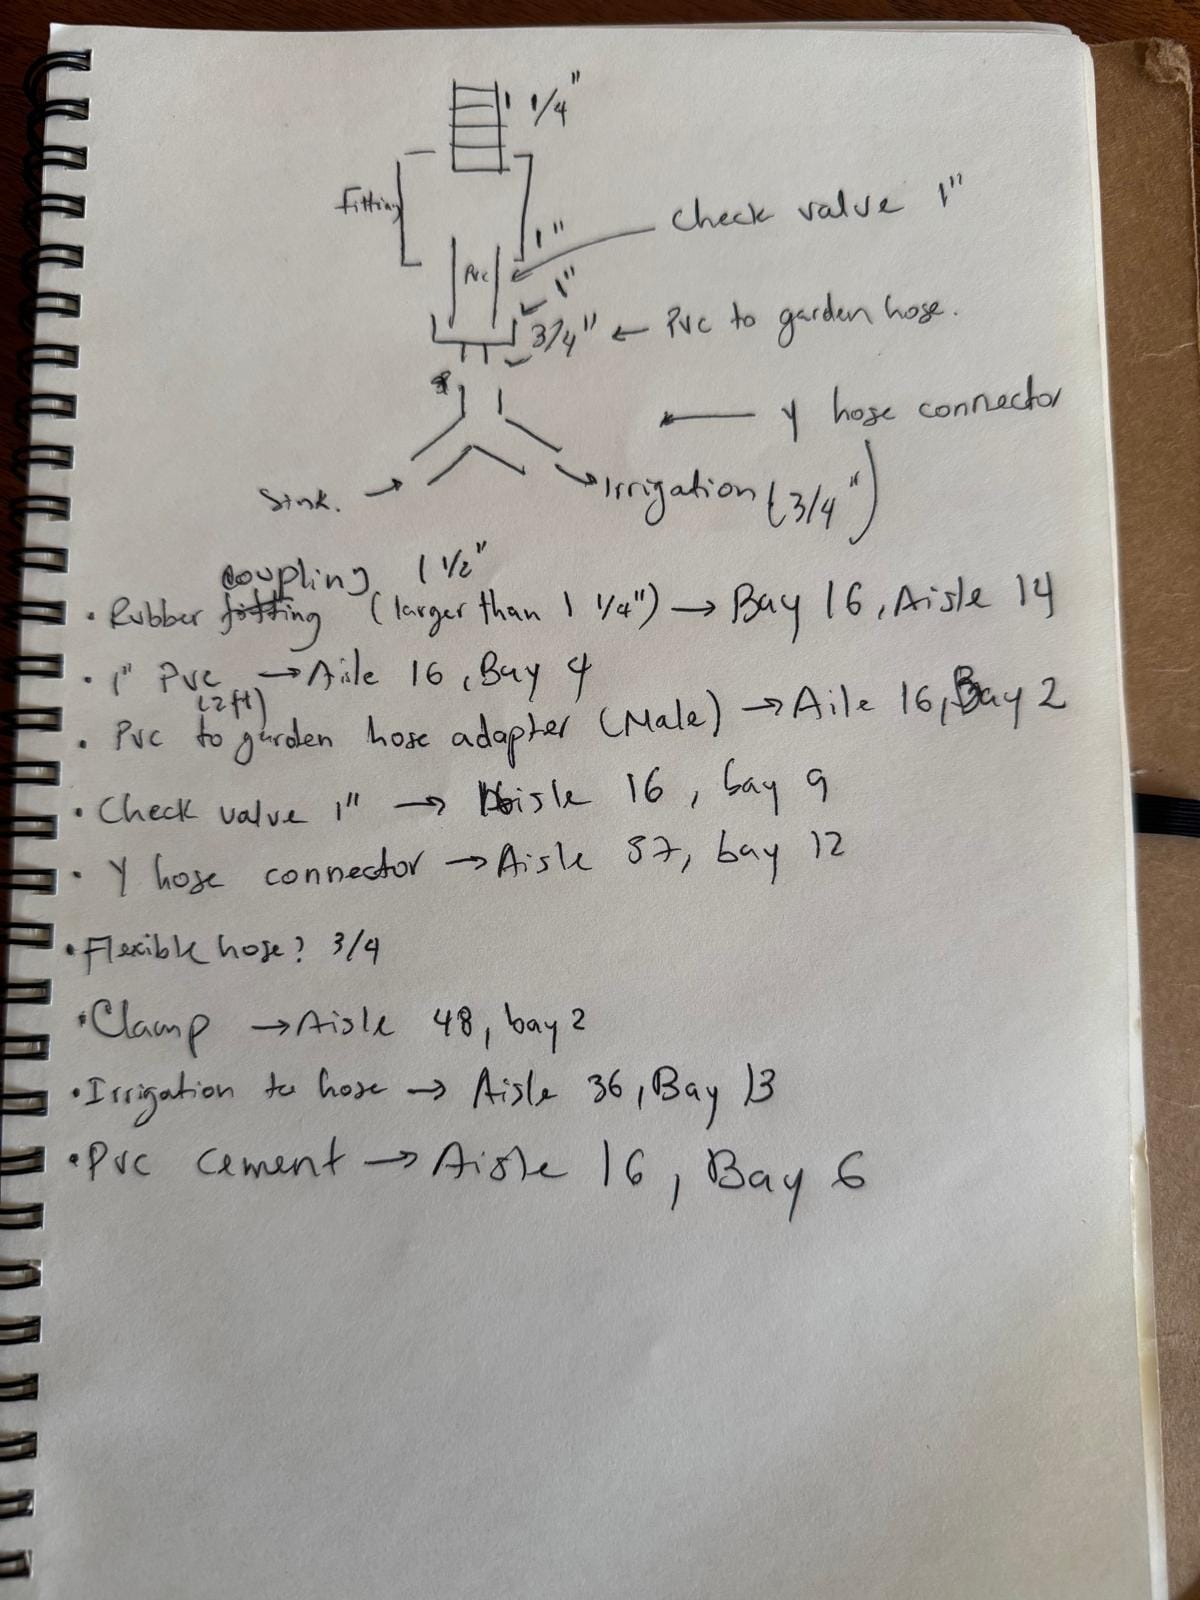 1 1/4"
Fitting
1"
Check valve 1"
Pvc
1"
3/4" ← Pvc to garden hose.
← Y hose connector
Sink. →
→ Irrigation (3/4")
coupling 1 1/2"
• Rubber fitting (larger than 1 1/4") → Bay 16, Aisle 14
• 1" Pvc → Aisle 16, Bay 4
(2ft)
• Pvc to garden hose adapter (Male) → Aile 16, Bay 2
• Check valve 1" → Aisle 16, bay 9
• Y hose connector → Aisle 37, bay 12
• Flexible hose? 3/4
• Clamp → Aisle 48, bay 2
• Irrigation to hose → Aisle 36, Bay 13
• Pvc cement → Aisle 16, Bay 6